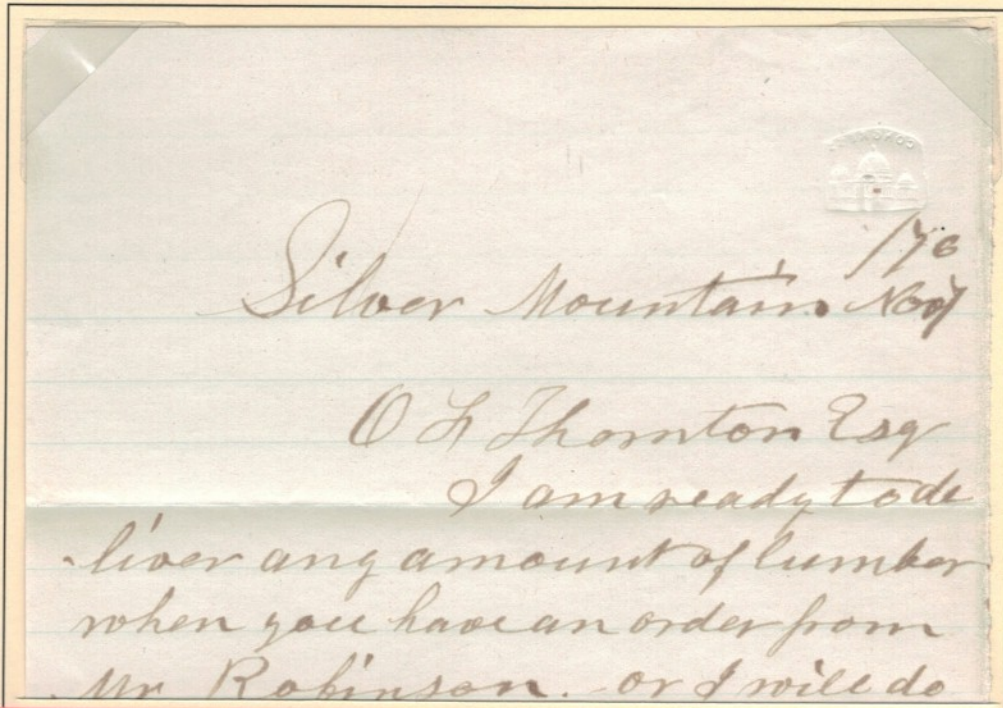 CONGRESS
Silver Mountain Nov
O Thornton Esq
I am ready to de
liver any amount of lumber
when you have an order from
Mr Robinson. or I will do